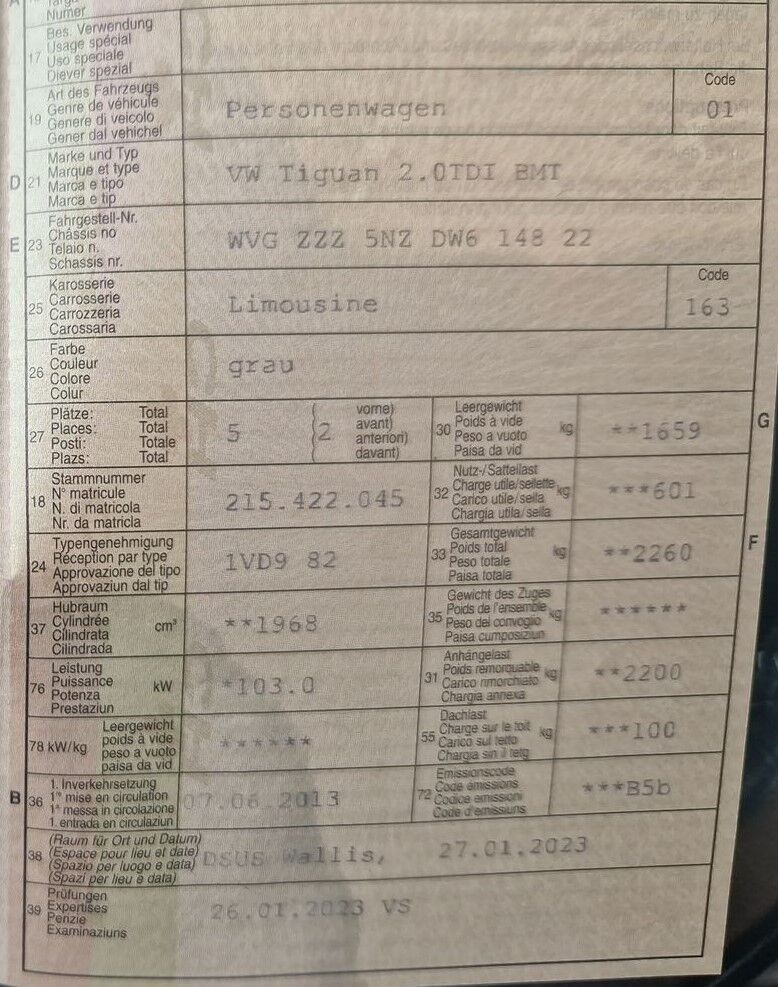 A
Targa
Numer
17
Bes. Verwendung
Usage spécial
Uso speciale
Diever spezial
19
Art des Fahrzeugs
Genre de véhicule
Genere di veicolo
Gener dal vehichel
Personenwagen
Code
01
D 21
Marke und Typ
Marque et type
Marca e tipo
Marca e tip
VW Tiguan 2.0TDI BMT
E 23
Fahrgestell-Nr.
Châssis no
Telaio n.
Schassis nr.
WVG ZZZ 5NZ DW6 148 22
25
Karosserie
Carrosserie
Carrozzeria
Carossaria
Limousine
Code
163
26
Farbe
Couleur
Colore
Colur
grau
27
Plätze: Total
Places: Total
Posti: Totale
Plazs: Total
5
(2
vorne)
avant)
anteriori)
davant)
30
Leergewicht
Poids à vide
Peso a vuoto
Paisa da vid
kg
**1659
G
18
Stammnummer
N° matricule
N. di matricola
Nr. da matricla
215.422.045
32
Nutz-/Sattellast
Charge utile/sellette
Carico utile/sella
Chargia utila/sella
kg
***601
24
Typengenehmigung
Réception par type
Approvazione del tipo
Approvaziun dal tip
1VD9 82
33
Gesamtgewicht
Poids total
Peso totale
Paisa totala
kg
**2260
F
37
Hubraum
Cylindrée
Cilindrata
Cilindrada
cm³
**1968
35
Gewicht des Zuges
Poids de l'ensemble
Peso del convoglio
Paisa cumposiziun
kg
******
76
Leistung
Puissance
Potenza
Prestaziun
kW
*103.0
31
Anhängelast
Poids remorquable
Carico rimorchiato
Chargia annexa
kg
**2200
78 kW/kg
Leergewicht
poids à vide
peso a vuoto
paisa da vid
******
55
Dachlast
Charge sur le toit
Carico sul tetto
Chargia sin il tetg
kg
***100
B 36
1. Inverkehrsetzung
1re mise en circulation
1a messa in circolazione
1. entrada en circulaziun
07.06.2013
72
Emissionscode
Code émissions
Codice emissioni
Code d'emissiuns
***B5b
38
(Raum für Ort und Datum)
(Espace pour lieu et date)
(Spazio per luogo e data)
(Spazi per lieu e data)
DSUS Wallis, 27.01.2023
39
Prüfungen
Expertises
Perizie
Examinaziuns
26.01.2023 VS